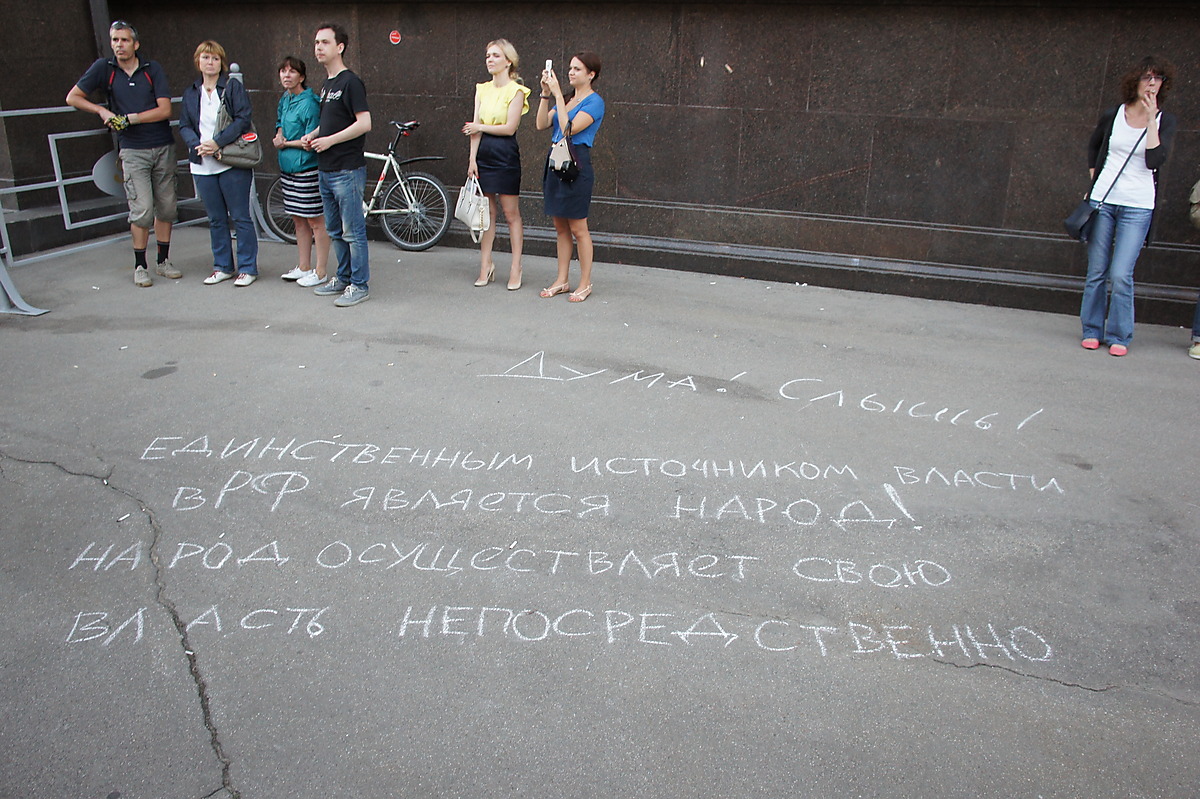 Дума! Слышь!
ЕДИНСТВЕННЫМ ИСТОЧНИКОМ ВЛАСТИ
В РФ ЯВЛЯЕТСЯ НАРОД!
НАРОД ОСУЩЕСТВЛЯЕТ СВОЮ
ВЛАСТЬ НЕПОСРЕДСТВЕННО